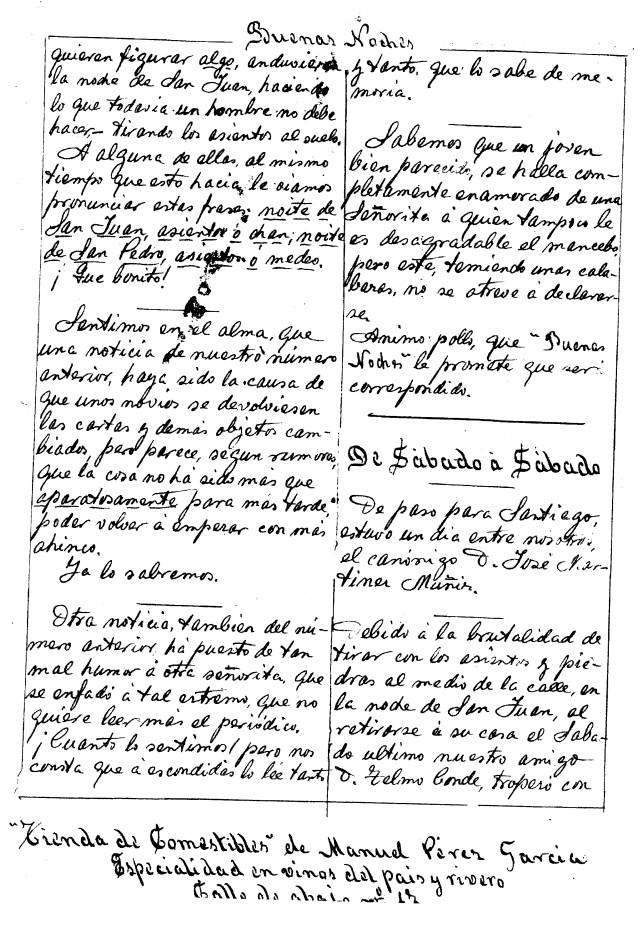 Buenas Noches
quieren figurar algo, anduvieron
la noche de San Juan, haciendo
lo que todavia un hombre no debe
hacer,- tirando los asientos al suelo.
A alguna de ellas, al mismo
tiempo que esto hacia, le oiamos
pronunciar estas frases: noite de
San Juan, asientos ó chan; noite
de San Pedro, asientos ó medeo.
¡Que bonito!
Sentimos en el alma, que
una noticia de nuestro número
anterior, haya sido la causa de
que unos novios se devolviesen
las cartas y demás objetos cam-
biados, pero parece, segun rumores,
que la cosa no há sido más que
aparatosamente para más tarde,
poder volver á emperar con más
ahinco.
Ya lo sabremos.
Otra noticia, tambien del nú-
mero anterior, há puesto de tan
mal humor á otra señorita, que
se enfadó á tal estremo, que no
quiere leer más el periódico.
¡Cuanto lo sentimos! pero nos
consta que á escondidas lo lée tanto
y tanto, que lo sabe de me-
moria.
Sabemos que un joven
bien parecido, se halla com-
pletamente enamorado de una
Señorita á quien tampoco le
es desagradable el mancebo,
pero este, temiendo unas cala-
bazas, no se atreve á declarar-
se.
Animo pollo, que "Buenas
Noches" le promete que será
correspondido.
De Sábado à Sábado
De paso para Santiago,
estuvo un dia entre nosotros,
el canónigo D. José Mar-
tinez Muñiz.
Debido á la brutalidad de
tirar con los asientos y pie-
dras al medio de la calle, en
la noche de San Juan, al
retirarse á su casa el Saba-
do ultimo nuestro amigo
D. Telmo Conde, tropezó con
"Tienda de Comestibles" de Manuel Pérez Garcia
Especialidad en vinos del pais y rivero
Calle de abajo nº 12